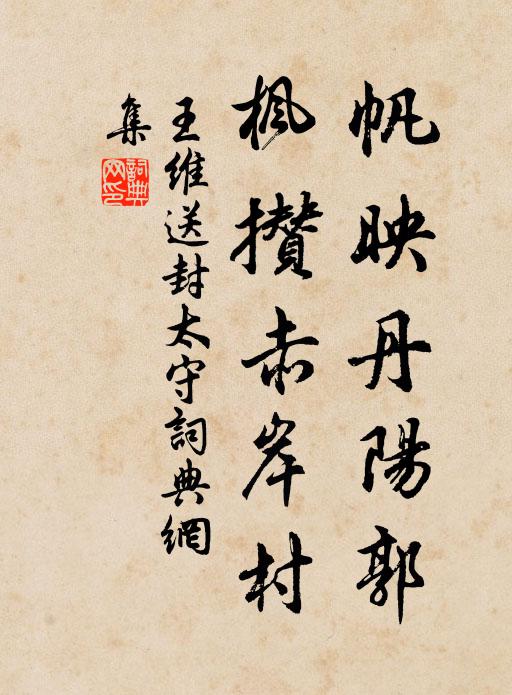 帆映丹陽郭
楓攢赤岸村
王維送封太守詞典網
集
詞典
网印